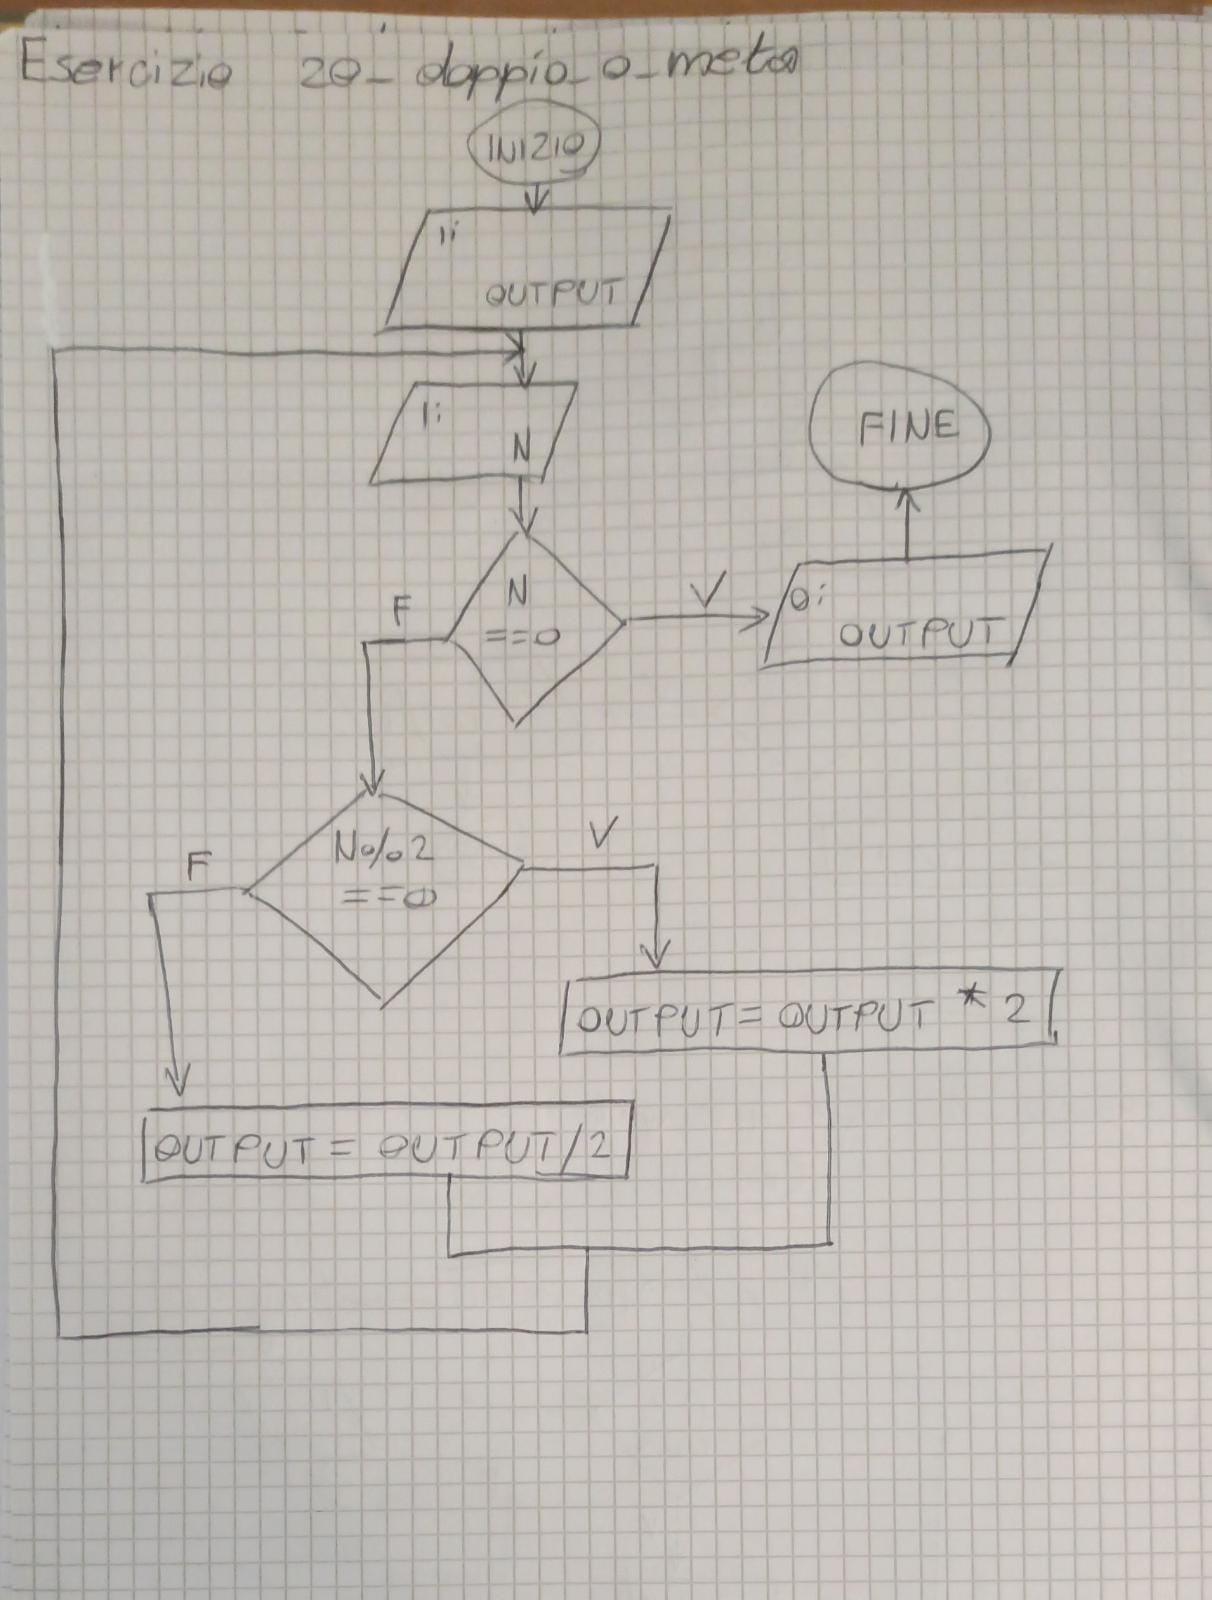 Esercizio 20_doppio_o_metà
INIZIO
I:
OUTPUT
I:
N
FINE
N
==0
F
V
O:
OUTPUT
N%2
==0
F
V
OUTPUT = OUTPUT * 2
OUTPUT = OUTPUT/2